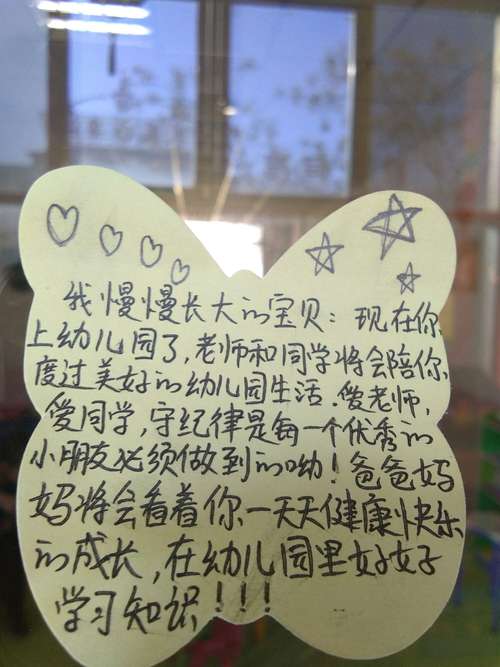 我慢慢长大的宝贝：现在你
上幼儿园了,老师和同学将会陪你
度过美好的幼儿园生活.爱老师,
爱同学,守纪律是每一个优秀的
小朋友必须做到的呦！爸爸妈
妈将会看着你一天天健康快乐
的成长,在幼儿园里好好
学习知识!!!